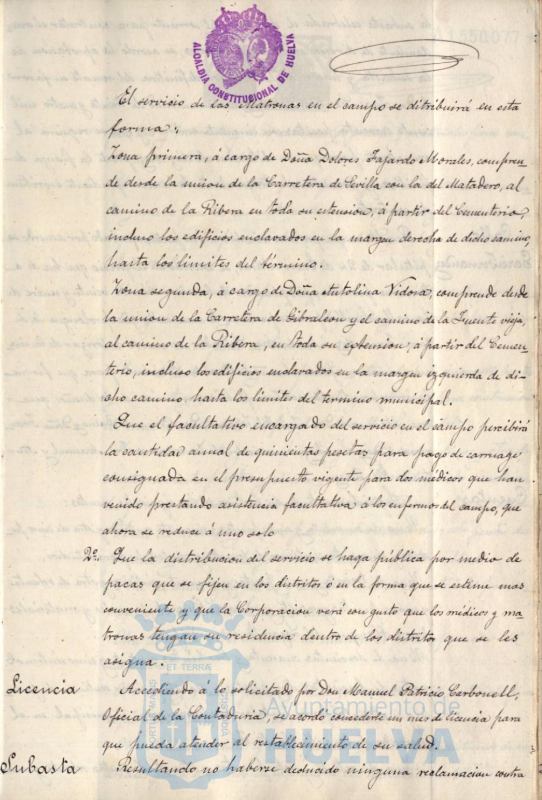 ALCALDIA CONSTITUCIONAL DE HUELVA
El servicio de las Matronas en el campo se ditribuirá en esta
forma:
Zona primera, á cargo de Doña Dolores Fajardo Morales, compren-
de desde la union de la Carretera de Sevilla con la del Matadero, al
camino de la Ribera en toda su extension, á partir del Cementerio,
incluso los edificios enclavados en la margen derecha de dicho camino,
hasta los limites del término.
Zona segunda, á cargo de Doña Antolina Vidosa, comprende desde
la union de la Carretera de Gibraleon y el camino de la Fuente vieja,
al camino de la Ribera, en toda su extension, á partir del Cemen-
terio, incluso los edificios enclavados en la margen izquierda de di-
cho camino, hasta los limites del termino municipal.
Que el facultativo encargado del servicio en el campo percibirá
la cantidad anual de quinientas pesetas para pago de carruage
consignada en el presupuesto vigente para dos médicos que han
venido prestando asistencia facultativa á los enfermos del campo, que
ahora se reduce á uno solo
2º. Que la distribucion del servicio se haga pública por medio de
pacas que se fijen en los distritos ó en la forma que se estime mas
conveniente y que la Corporacion verá con gusto que los médicos y ma-
tronas tengan su residencia dentro de los distritos que se les
asigna.
Licencia Accediendo á lo solicitado por Don Manuel Patricio Carbonell,
Oficial de la Contaduria, se acordo concederle un mes de licencia para
que pueda atender al restablecimiento de su salud.
Subasta Resultando no haberse deducido ninguna reclamacion contra
ET TERRA
Ayuntamiento de
HUELVA